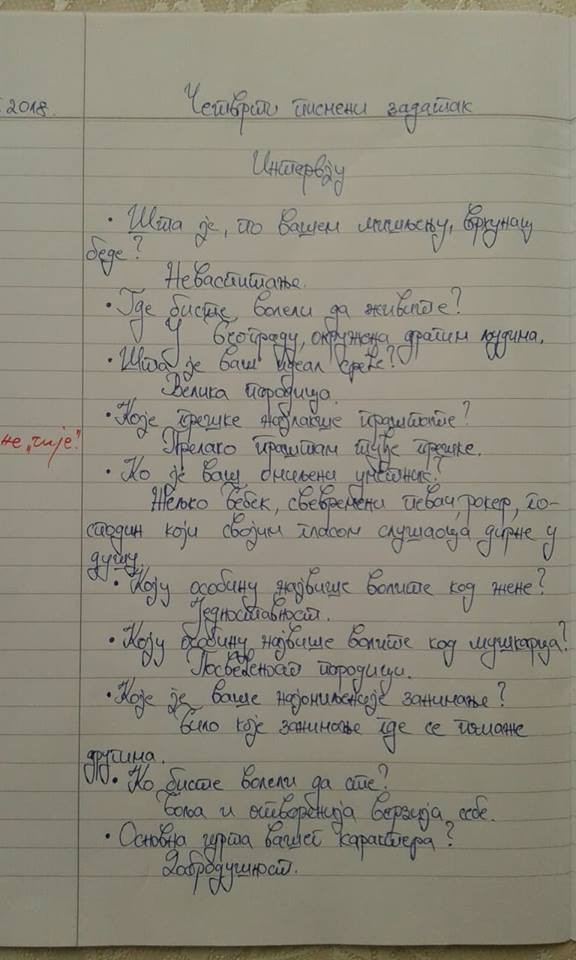 2018.
Четврти писмени задатак
Интервју
• Шта је, по вашем мишљењу, врхунац
беде?
Неваспитање.
• Где бисте волели да живите?
У Београду, окружена драгим људима.
• Шта је ваш идеал среће?
Велика породица.
• Које грешке најлакше праштате?
не „чије“! Прелако праштам туђе грешке.
• Ко је ваш омиљени уметник?
Жељко Бебек, свевремени певач, рокер, го-
сподин који својим гласом слушаоца дирне у
душу.
• Коју особину највише волите код жене?
Једноставност.
• Коју особину највише волите код мушкарца?
Посвећеност породици.
• Које је ваше најомиљеније занимање?
Било које занимање где се помаже
другима.
• Ко бисте волели да сте?
Боља и отворенија верзија себе.
• Основна црта вашег карактера?
Добродушност.